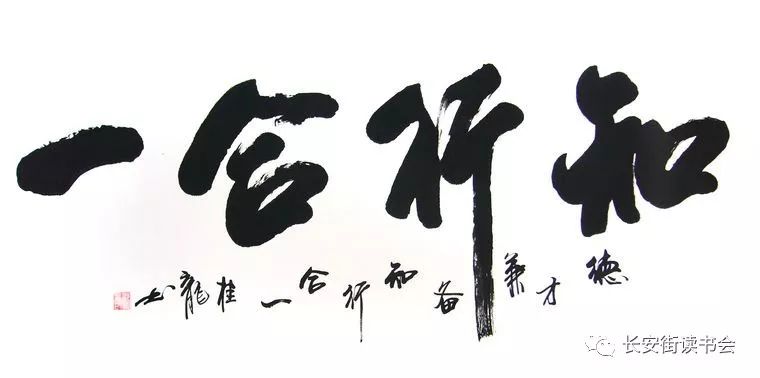 知行合一
德才兼备知行合一桂龙书
长安街读书会